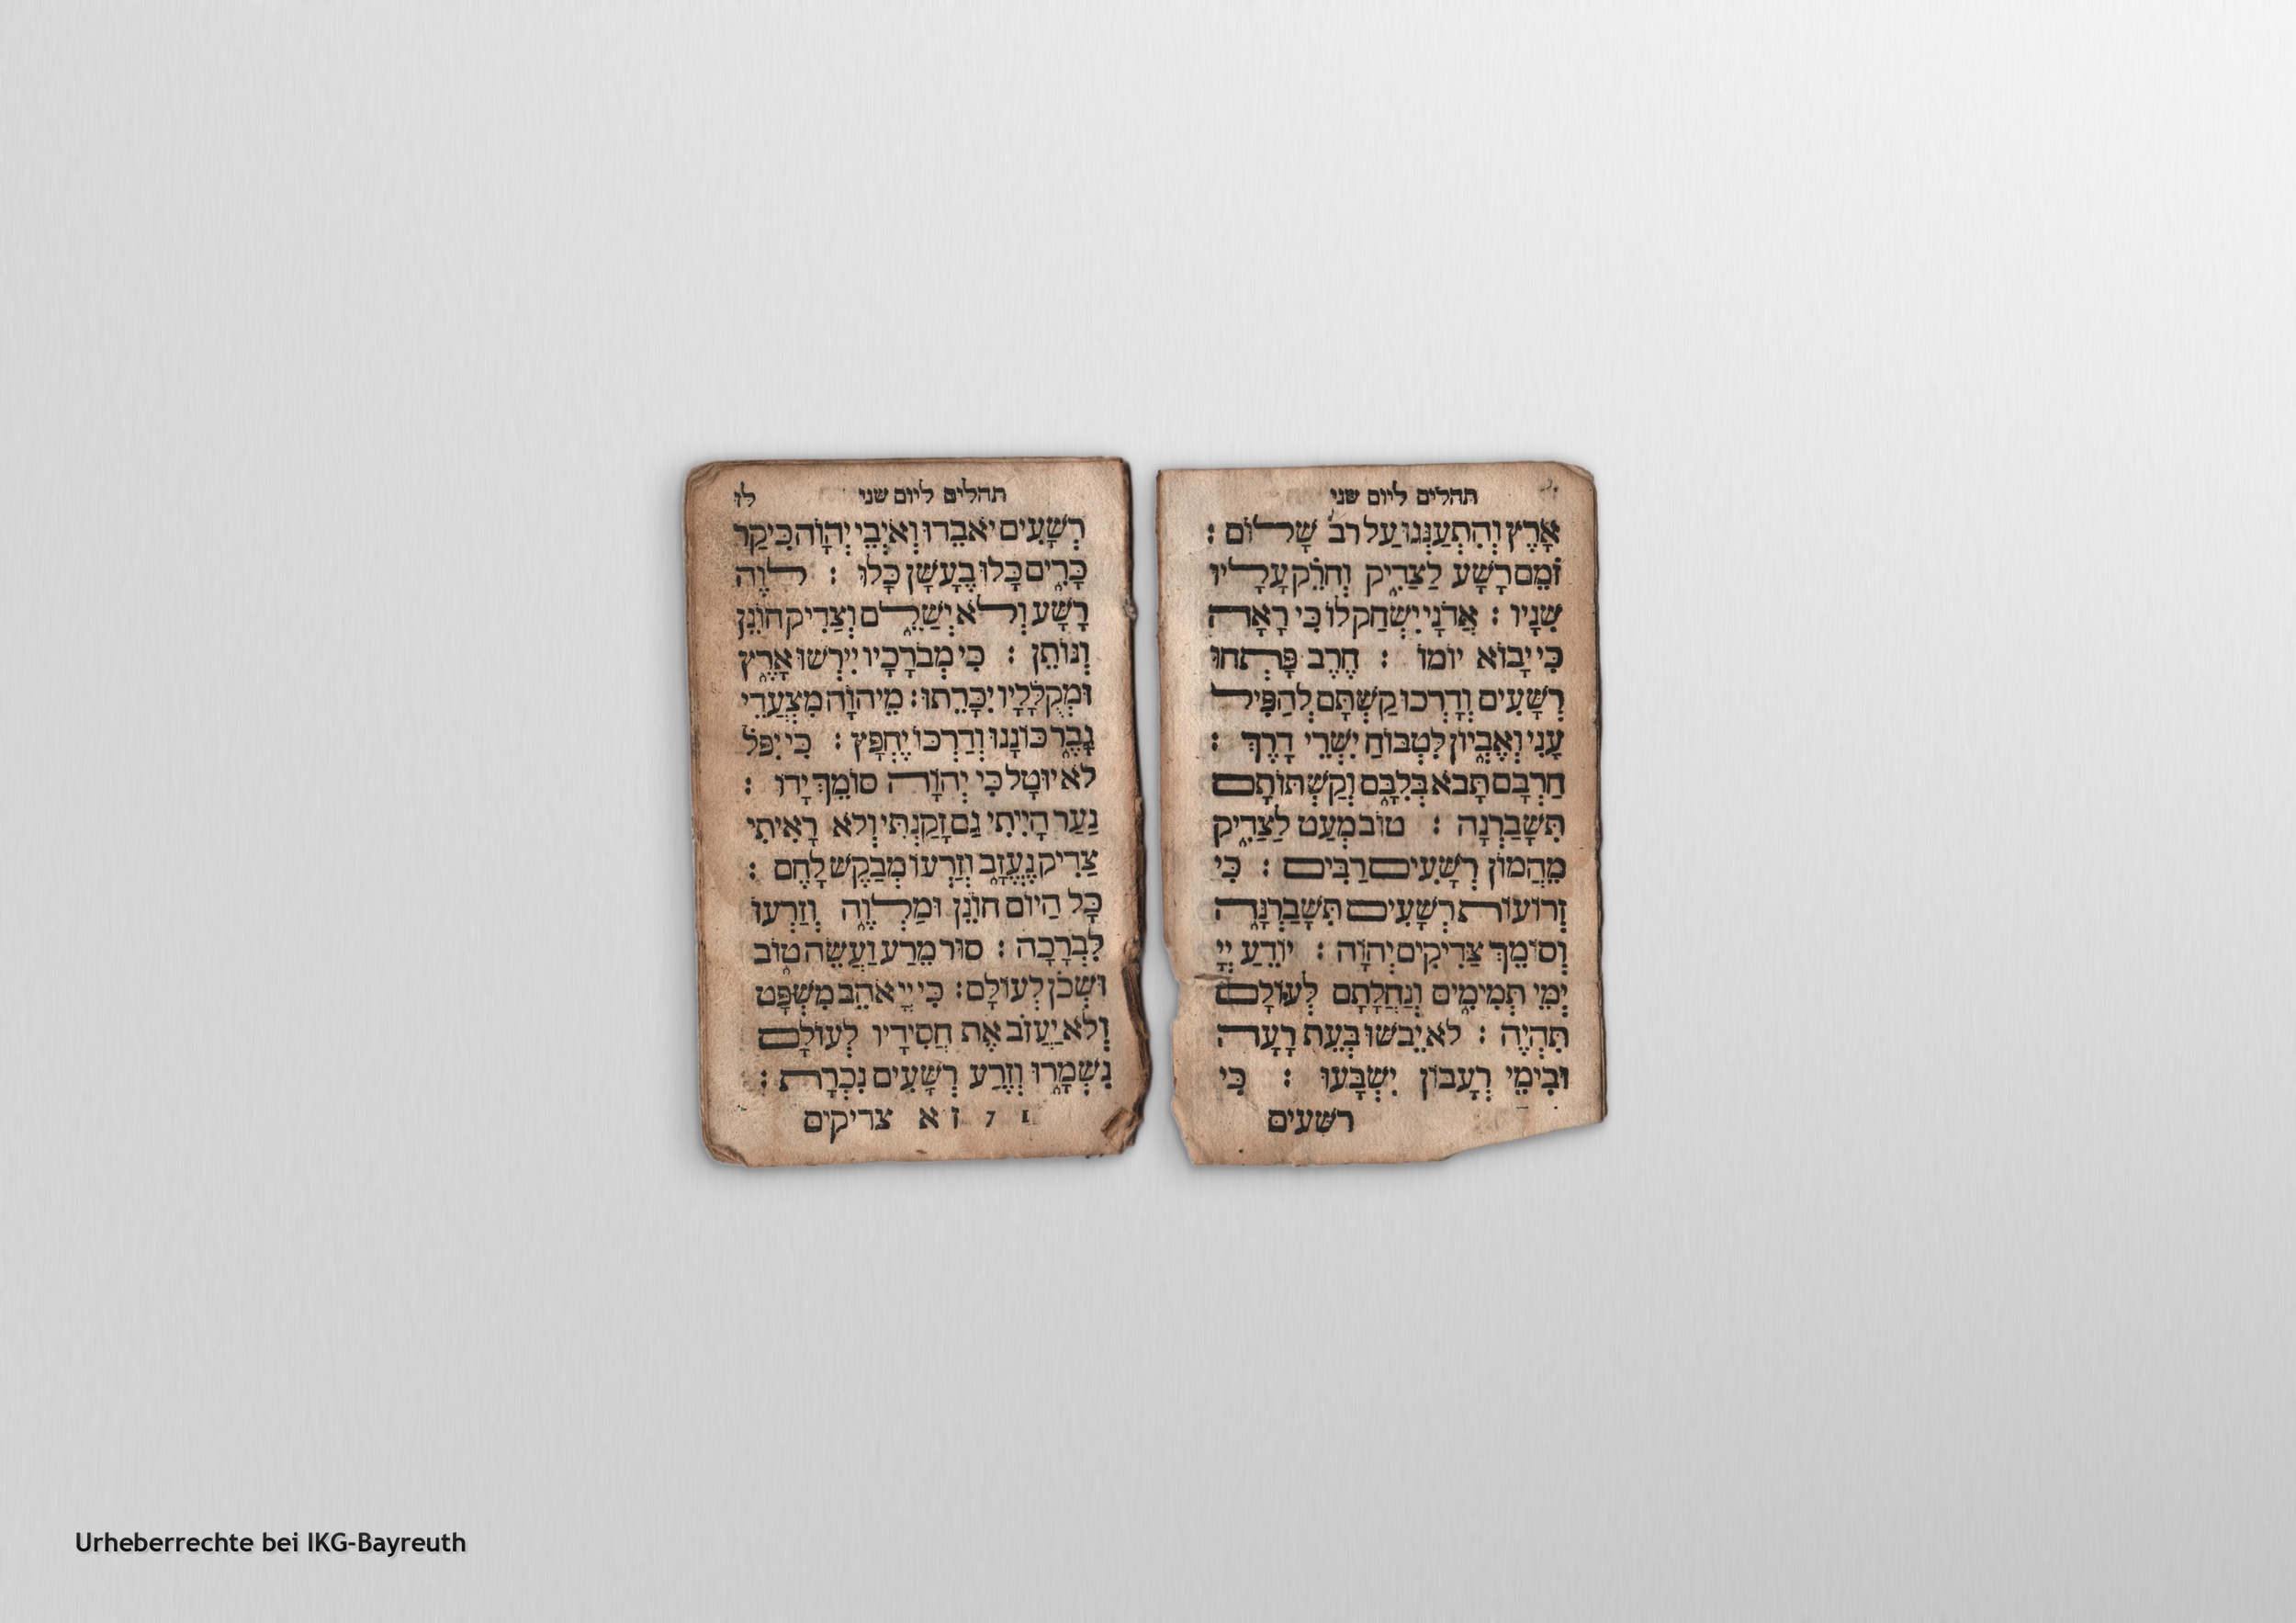 תהלים ליום שני
אָרֶץ וְהִתְעַנְּגוּ עַל רֹב שָׁלוֹם :
זֹמֵם רָשָׁע לַצַּדִּיק וְחֹרֵק עָלָיו
שִׁנָּיו : אֲדֹנָי יִשְׂחַק לוֹ כִּי רָאָה
כִּי יָבוֹא יוֹמוֹ : חֶרֶב פָּתְחוּ
רְשָׁעִים וְדָרְכוּ קַשְׁתָּם לְהַפִּיל
עָנִי וְאֶבְיוֹן לִטְבוֹחַ יִשְׁרֵי דָרֶךְ :
חַרְבָּם תָּבֹא בְלִבָּם וְקַשְּׁתוֹתָם
תִּשָּׁבַרְנָה : טוֹב מְעַט לַצַּדִּיק
מֵהֲמוֹן רְשָׁעִים רַבִּים : כִּי
זְרוֹעוֹת רְשָׁעִים תִּשָּׁבַרְנָה
וְסוֹמֵךְ צַדִּיקִים יְהוָֹה : יוֹדֵעַ יְיָ
יְמֵי תְמִימִים וְנַחֲלָתָם לְעוֹלָם
תִּהְיֶה : לֹא יֵבשׁוּ בְּעֵת רָעָה
וּבִימֵי רְעָבוֹן יִשְׂבָּעוּ : כִּי
רשעים
תהלים ליום שני לו
רְשָׁעִים יֹאבֵדוּ וְאֹיְבֵי יְהוָֹה כִּיקַר
כָּרִים כָּלוּ בֶעָשָׁן כָּלוּ : לוֶֹה
רָשָׁע וְלֹא יְשַׁלֵּם וְצַדִּיק חוֹנֵן
וְנוֹתֵן : כִּי מְבֹרָכָיו יִירְשׁוּ אָרֶץ
וּמְקֻלָּלָיו יִכָּרֵתוּ : מֵיהוָֹה מִצְעֲדֵי
גֶבֶר כּוֹנָנוּ וְדַרְכּוֹ יֶחְפָּץ : כִּי יִפֹּל
לֹא יוּטָל כִּי יְהוָֹה סוֹמֵךְ יָדוֹ :
נַעַר הָיִיתִי גַּם זָקַנְתִּי וְלֹא רָאִיתִי
צַדִּיק נֶעֱזָב וְזַרְעוֹ מְבַקֶּשׁ לָחֶם :
כָּל הַיּוֹם חוֹנֵן וּמַלְוֶה וְזַרְעוֹ
לִבְרָכָה : סוּר מֵרָע וַעֲשֵׂה טוֹב
וּשְׁכֹן לְעוֹלָם : כִּי יְיָ אֹהֵב מִשְׁפָּט
וְלֹא יַעֲזֹב אֶת חֲסִידָיו לְעוֹלָם
נִשְׁמָרוּ וְזֶרַע רְשָׁעִים נִכְרָת :
1 7 ז א צדיקים
Urheberrechte bei IKG-Bayreuth